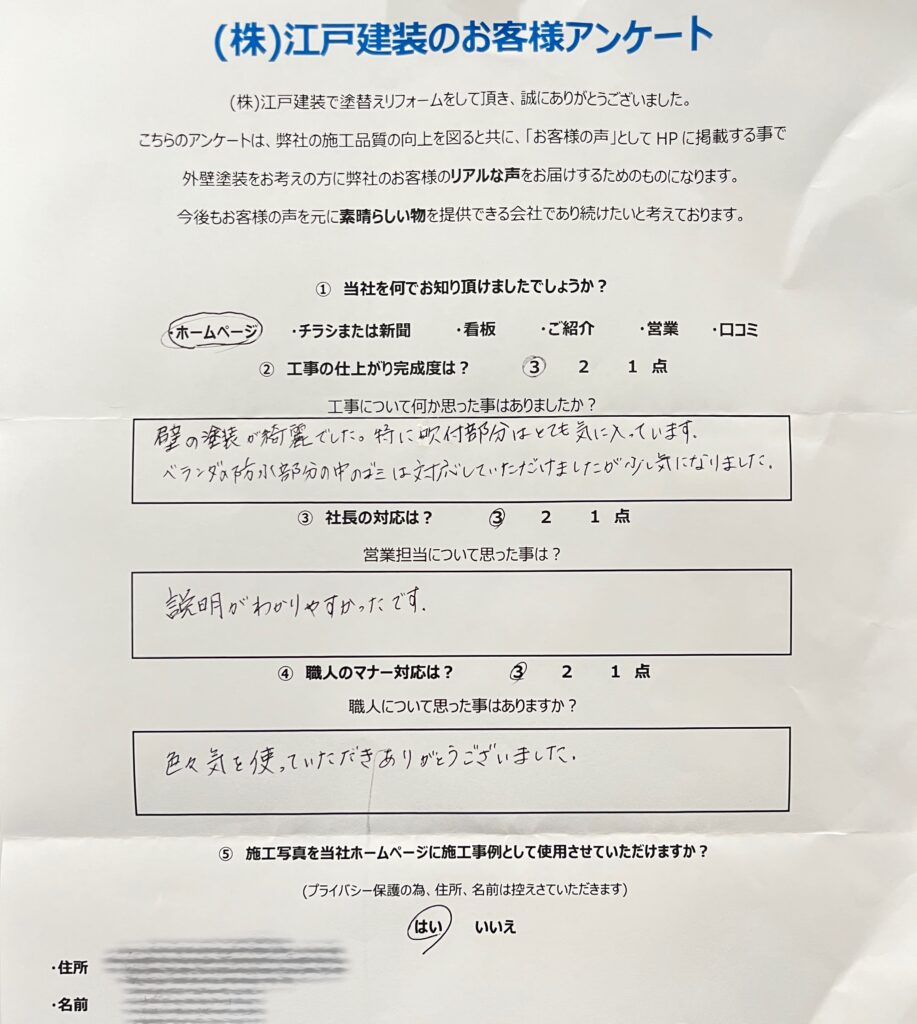 (株)江戸建装のお客様アンケート
(株)江戸建装で塗替えリフォームをして頂き、誠にありがとうございました。
こちらのアンケートは、弊社の施工品質の向上を図ると共に、「お客様の声」として HP に掲載する事で
外壁塗装をお考えの方に弊社のお客様のリアルな声をお届けするためのものになります。
今後もお客様の声を元に素晴らしい物を提供できる会社であり続けたいと考えております。
① 当社を何でお知り頂けましたでしょうか？
・ホームページ ・チラシまたは新聞 ・看板 ・ご紹介 ・営業 ・口コミ
② 工事の仕上がり完成度は？ 3 2 1 点
工事について何か思った事はありましたか？
壁の塗装が綺麗でした。特に吹付部分はとても気に入っています.
ベランダの防水部分の中のゴミは対応していただけましたが少し気になりました.
③ 社長の対応は？ 3 2 1 点
営業担当について思った事は？
説明がわかりやすかったです.
④ 職人のマナー対応は？ 3 2 1 点
職人について思った事はありますか？
色々気を使っていただきありがとうございました.
⑤ 施工写真を当社ホームページに施工事例として使用させていただけますか？
(プライバシー保護の為、住所、名前は控えさていただきます)
はい いいえ
・住所
・名前